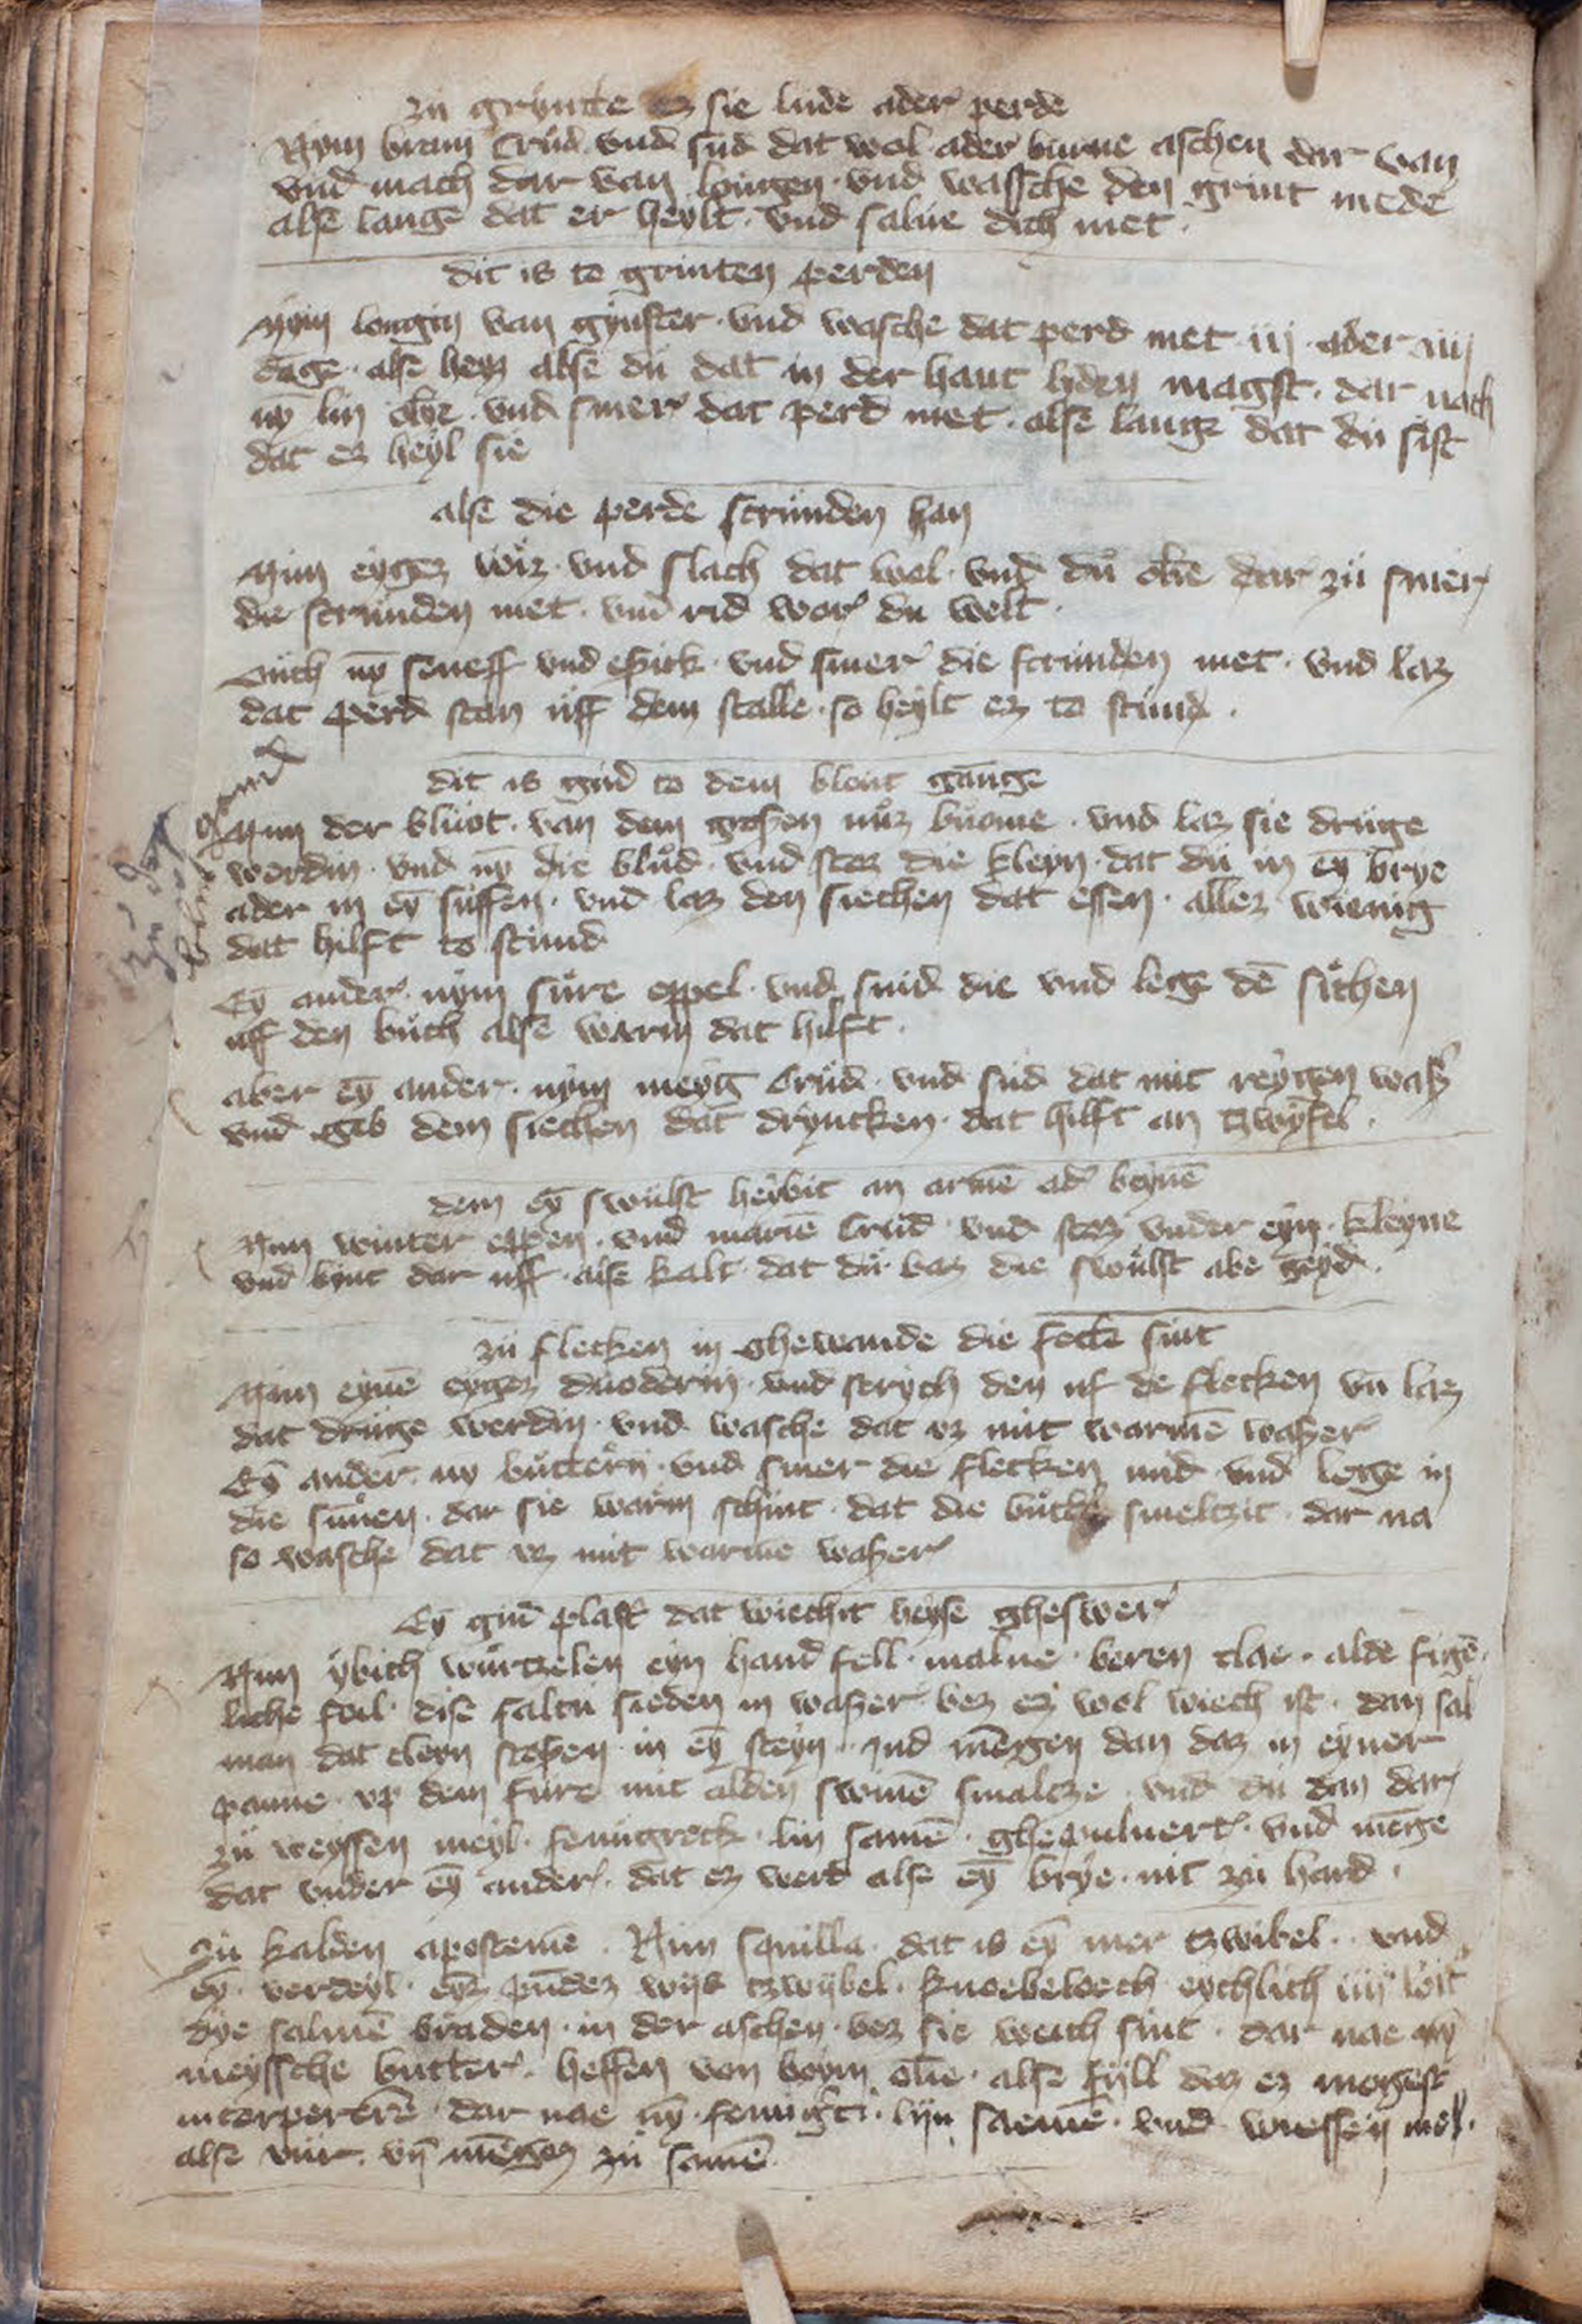 zü grynde ez sie lude ader perde
Nym bram crud vnd sud dat wol ader burne aschen dar van
vnd mach dar van lougen vnd wassche den grint mede
alse lange dat er heylt vnd salue dich met
dit is to grinten perden
Nym longin van gynster vnd wasche dat perd met iij ader iiij
dage alse heyz alse du dat in der hant liden magst dar nach
nȳ lin olye vnd smer dat perd met alse lange dat du sist
dat ez heyl sie
alse die perde scrunden han
Nim eygez wiz vnd slach dat wol vnd du olie dar zü smer
die scrunden met vnd rid wor du welt
Auch nȳ seneff vnd espick vnd smer die scrunden met vnd laz
dat perd stan uff dem stalle so heylt ez to stund
dit is gud to dem blout gange
Nim der bluot van dem grossen nuz buome vnd laz sie druge
werdin vnd nȳ die blud vnd stoz die kleyn dat du in eȳ brye
ader in eȳ suffen vnd laz den siechen dat essen allez wienig
dat hilft to stund
Eȳ ander nym sure eppel vnd snid die vnd lege dē sichen
uff den buch alse warm dat hilft
aber eȳ ander nym meyg crud vnd sud dat mit reygen waß
vnd geb dem siechen dat dryncken dat hilft an tzwyfel
dem eȳ swulst heybit an armē adˀ beynē
Nim winter eppen vnd mariē crud vnd stoz vnder eyn kleyne
vnd bynt dar uff alse kalt dat du baz die swulst abe geyd
zü flecken in ghewande die fecte sint
Nim eynē eygez duoderin vnd strych den uf de flecken vn̄ laz
dat druge werdin vnd wasche dat vz mit warmē waßer
Eȳ ander nȳ buttern vnd smer die flecken mid vnd lege in
die sunen dar sie warm schint dat die smeltzit dar na
so wasche dat vz mit warme waßer
Eȳ gud plastˀ dat wiechit heyse gheswer
Nim ybich wurtzelen eyn hand fell malue beren clae alde figē
liche foil dise saltu sieden in waßer bez ez wol wiech ist dan sal
man dat cleyn stoßen in eȳ steyn vnd mēgen dan daz in eyner
panne vp dem fure mit alden swinē smaltze vnd du dan dar
zü weyssen meyl fenugreck lin samē ghepuluert vnd mēge
dat vnder eȳ ander dat ez werd alse eȳ brye nit zü hard
zü kalden apostemē Nim squilla dat is eȳ mer tzwibel vnd
eȳ verdeyl eyz pundez wiß tzwybel knoebeloech eychlich iiij loit
dye salmē braden in der aschen bez sie weich sint dar nae nȳ
meyssche butter heffen von boym olie alse fyll daz ez mogest
dar nae nȳ lyn saemē vnd wiessen mel
alse vür vn̄ mēgez zü samē